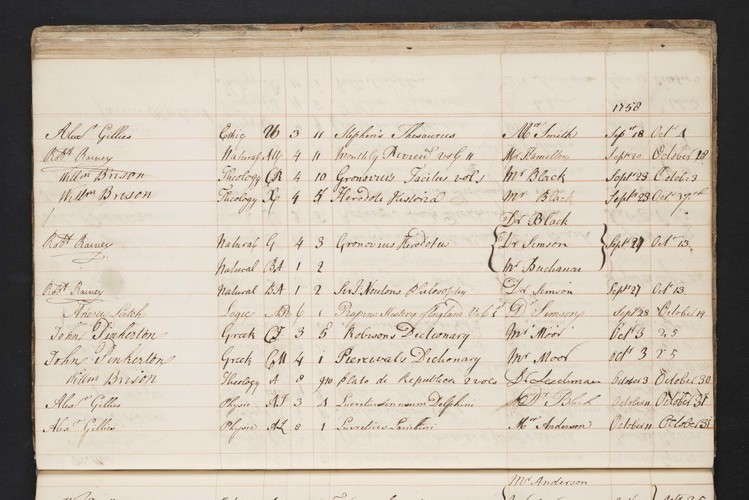 1758
Alexr. Gillies Ethic 3 11 Stephen's Thesaurus Mr Smith Septr 18 Oct 4
Robt. Rainey Natural 4 11 Monthly Review vol 11 Mr Hamilton Septr 20 October 28
Willm Brison Theology 4 10 Gronovius Tacitus vol 1 Mr Black Septr 23 October 3
Willm Brison Theology 4 5 Herodoti Historia Mr Black Septr 23 Octr 27th
Dr Black
Robt. Rainey Natural G 4 3 Gronovius Herodotus Dr Simson Septr 27 Octr 13
Natural BA 1 2 Mr Buchanan
Robt. Rainey Natural BA 1 2 Sr I. Newtons Philosophy Dr Simson Septr 27 Oct 13
Andrew Leitch Logic 6 1 History England Dr Simson Septr 28 October 14
John Pinkerton Greek 3 5 Robinsons Dictionary Mr Moor Octr 3 25
John Pinkerton Greek 4 1 Piercivals Dictionary Mr Moor Octr 3 25
Willm Brison Theology A 8 9 10 Plato de Republica 2 vols Dr Leechman October 3 October 30
Alexr. Gillies Physic 3 4 Lucretius in usum Delphini Dr Black October 11 October 31
Alexr. Gillies Physic 8 1 Lucretius Mr Anderson October 11 October 31
Mr Anderson